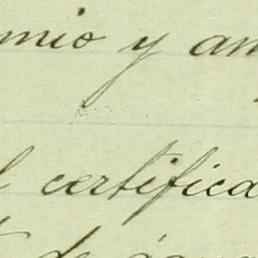 mio y am
l certifica
de